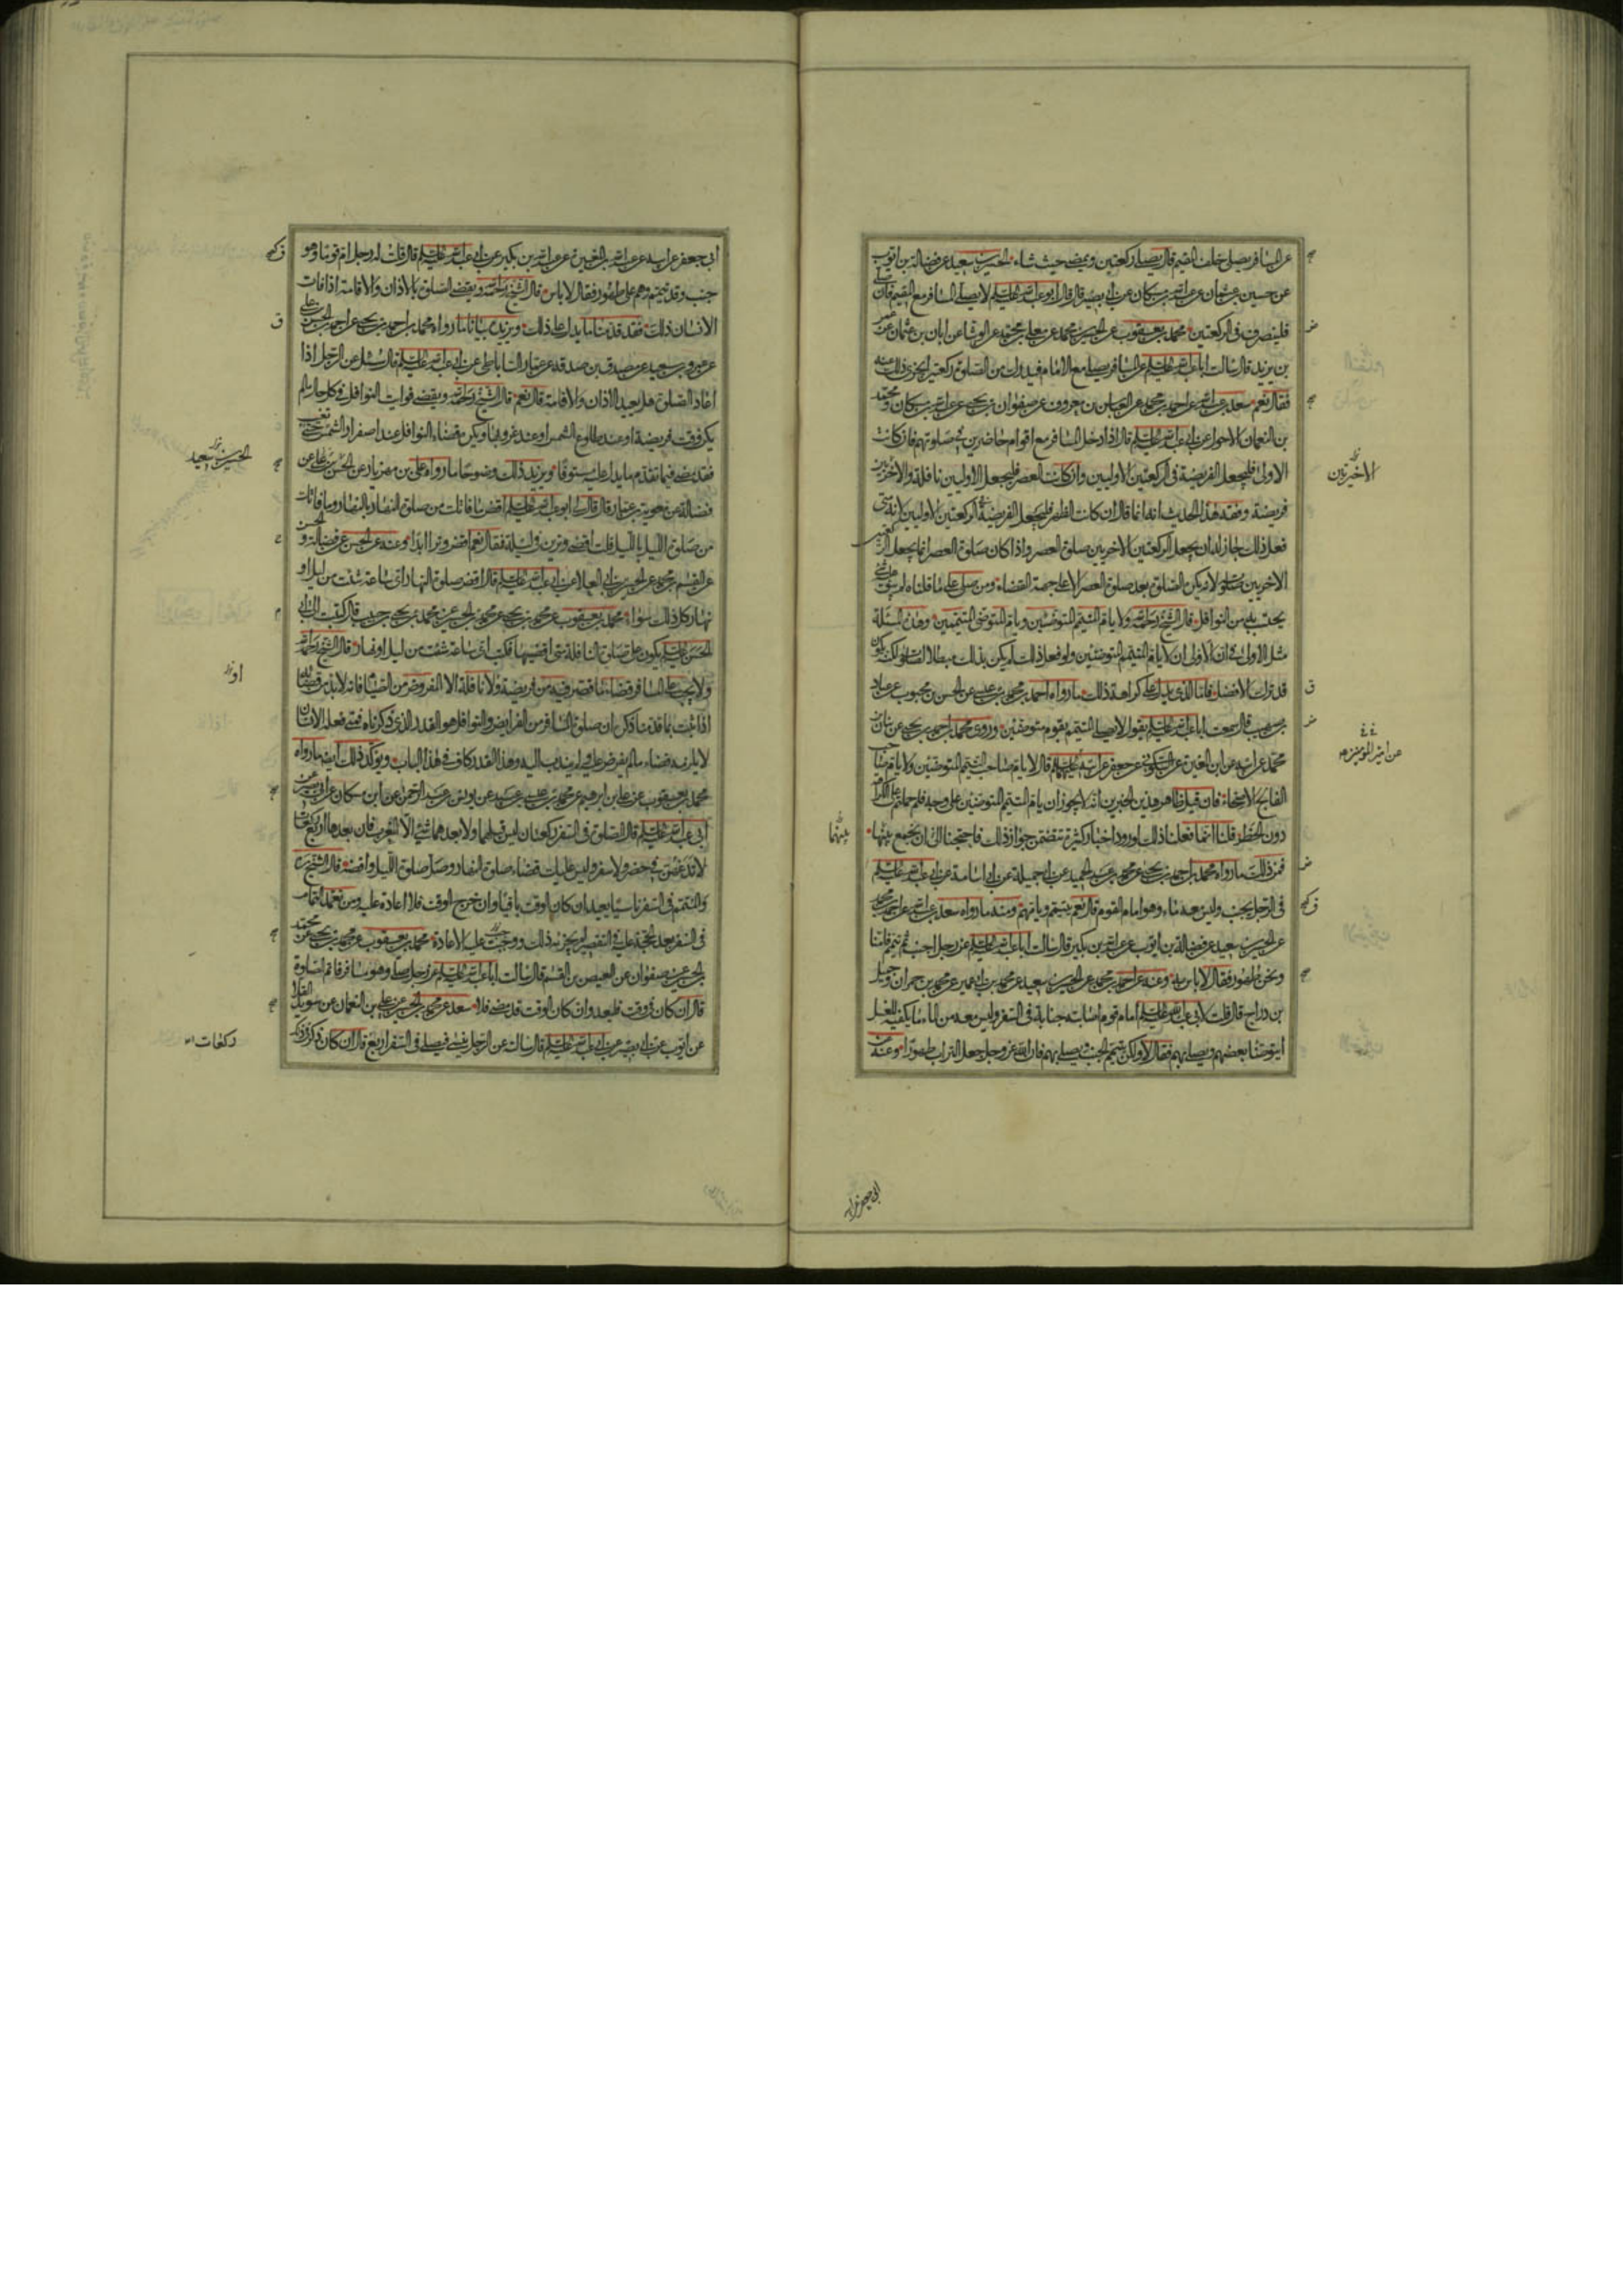 عن المسافر يصلي خلف المقيم قال يصلي ركعتين ويمضي حيث شاء الحسين بن سعيد عن فضالة بن ايوب
عن حسين بن عثمان عن عبد الله بن مسكان عن ابي بصير قال قال ابو عبد الله عليه السلم لا يصلي المسافر مع المقيم فان صلى
فلينصرف في الركعتين محمد بن يعقوب عن الحسين بن محمد عن معلى بن محمد عن الوشا عن ابان بن عثمان عن عمر
بن يزيد قال سالت ابا عبد الله عليه السلم عن المسافر يصلي مع الامام فيدرك من الصلوة ركعتين ايجزي ذلك عنه
فقال نعم سعد بن عبد الله عن احمد بن محمد عن العباس بن معروف عن صفوان بن يحيى عن عبد الله بن مسكان ومحمد
بن النعمان الاحول عن ابي عبد الله عليه السلم قال اذا دخل المسافر مع اقوام حاضرين في صلوتهم فان كانت
الاولى فليجعل الفريضة في الركعتين الاوليين وان كانت العصر فليجعل الاوليين نافلة والاخيرتين
فريضة وفقه هذا الحديث انه انما قال ان كانت الظهر فليجعل الفريضة في الركعتين الاوليين لانه متى
فعل ذلك جاز له ان يجعل الركعتين الاخريين صلوة العصر واذا كان صلوة العصر انما يجعل
الاخريين صلوته لانه يكره الصلوة بعد صلوة العصر الا على جهة القضاء ومن صلى على ما قلناه لم يبق
يحتسب به من النوافل قال الشيخ رحمه الله ولا يام المتيمم المتوضئين ويام المتوضئ المتيممين وهذه المسئلة
مثل الاولى في ان الاولى ان لا يام المتيمم المتوضئين ولو فعل ذلك لم يكن بذلك مبطلا لصلوته لكنه يكون
قد ترك الافضل فاما الذي يدل على كراهة ذلك ما رواه احمد بن محمد بن عيسى عن الحسن بن محبوب عن عباد
بن صهيب قال سمعت ابا عبد الله عليه السلم يقول لا يصلي المتيمم بقوم متوضئين وروى محمد بن احمد بن يحيى عن بنان بن
محمد عن ابيه عن ابن المغيرة عن السكوني عن جعفر عن ابيه عليهما السلم قال لا يام صاحب التيمم المتوضئين ولا يام صاحب
الفالج الاصحاء فان قيل ظاهر هذين الخبرين انه لا يجوز ان يام المتيمم المتوضئين على وجه فلم حملتم على الكراهة
دون الحظر قلنا انما فعلنا ذلك لورود اخبار كثيرة تتضمن جواز ذلك فاحتجنا الى ان نجمع بينها
فمن ذلك ما رواه محمد بن احمد بن يحيى عن محمد بن عبد الحميد عن ابي جميلة عن ابي اسامة عن ابي عبد الله عليه السلم
في الرجل يجنب وليس معه ماء وهو امام القوم قال نعم يتيمم ويامهم ومنه ما رواه سعد بن عبد الله عن احمد بن محمد
عن الحسين بن سعيد عن فضالة بن ايوب عن عبد الله بن بكير قال سالت ابا عبد الله عليه السلم عن رجل اجنب ثم تيمم فامنا
ونحن طهور فقال لا باس به وعنه عن احمد بن محمد عن الحسين بن سعيد عن محمد بن ابي عمير عن محمد بن حمران وجميل
بن دراج قال قلت لابي عبد الله عليه السلم امام قوم اصابته جنابة في السفر وليس معه من الماء ما يكفيه للغسل
ايتوضا بعضهم ويصلي بهم فقال لا ولكن يتيمم الجنب ويصلي بهم فان الله عز وجل جعل التراب طهورا وعنه عن
الاخيرتين
عن امير المومنين
بينهما
ابي جعفر عن ابيه
ابي جعفر عن ابيه عن عبد الله بن المغيرة عن عبد الله بن بكير عن ابي عبد الله عليه السلم قال قلت له رجل ام قوما وهو
جنب وقد تيمم وهم على طهور فقال لا باس قال الشيخ رحمه الله ويقضي الصلوة بالاذان والاقامة اذا فات
الانسان ذلك فقد قدمنا ما يدل على ذلك ويزيده بيانا ما رواه محمد بن احمد بن يحيى عن احمد بن الحسن بن علي
عن عمرو بن سعيد عن مصدق بن صدقة عن عمار الساباطي عن ابي عبد الله عليه السلم قال سئل عن الرجل اذا
اعاد الصلوة هل يعيد الاذان والاقامة قال نعم قال الشيخ رحمه الله ويقضي فوايت النوافل في كل حال ما لم
يكن وقت فريضة او عند طلوع الشمس او عند غروبها ويكره قضاء النوافل عند اصفرار الشمس حتى تغيب
فقد مضى فيما تقدم ما يدل عليه مستوفا ويزيد ذلك وضوحا ما رواه علي بن مهزيار عن الحسن بن علي عن
فضالة عن معوية بن عمار قال قال ابو عبد الله عليه السلم اقض ما فاتك من صلوة النهار بالنهار وما فاتك
من صلوة الليل بالليل قلت اقضي وترين في ليلة فقال نعم اقض وترا ابدا وعنه عن الحسن عن فضالة و
عن القسم بن محمد عن الحسين بن ابي العلا عن ابي عبد الله عليه السلم قال اقض صلوة النهار اي ساعة شئت من ليل او
نهار كل ذلك سواء محمد بن يعقوب عن محمد بن يحيى عن محمد بن الحسين عن محمد بن يحيى بن حبيب قال كتبت الى ابي
الحسن عليه السلم يكون علي صلوة النافلة متى اقضيها فكتب اي ساعة شئت من ليل او نهار قال الشيخ رحمه الله
ولا يجب على المسافر قضاء ما قصر فيه من فريضة ولا نافلة الا المفروض من الصيام فانه لا بد من قضائه
اذا ثبت بما قدمنا ذكره ان صلوة المسافر من الفرايض والنوافل هو القدر الذي ذكرناه فمتى فعله الانسان
لا يلزمه قضاء ما لم يفرض عليه او يندب اليه وهذا القدر كاف في هذا الباب ويؤكد ذلك ايضا ما رواه
محمد بن يعقوب عن علي بن ابرهيم عن محمد بن عيسى بن عبيد عن يونس بن عبد الرحمن عن ابن مسكان عن ابي بصير عن
ابي عبد الله عليه السلم قال الصلوة في السفر ركعتان ليس قبلهما ولا بعدهما شئ الا المغرب فان بعدها اربع ركعات
لا تدعهن في حضر ولا سفر وليس عليك قضاء صلوة النهار وصل صلوة الليل واقضه قال الشيخ رحمه الله
والمتمم في السفر ناسيا يعيد ان كان الوقت باقيا وان خرج الوقت فلا اعادة عليه ومن تعمد التمام
في السفر بعد الحجة عليه في التقصير لم يجزه ذلك ووجبت عليه الاعادة محمد بن يعقوب عن محمد بن يحيى عن محمد
بن الحسين عن صفوان عن العيص بن القسم قال سالت ابا عبد الله عليه السلم عن رجل صلى وهو مسافر فاتم الصلوة
قال ان كان في وقت فليعد وان كان الوقت قد مضى فلا سعد عن محمد بن الحسين عن علي بن النعمان عن سويد القلا
عن ايوب عن ابي بصير عن ابي عبد الله عليه السلم قال سالته عن الرجل ينسى فيصلي في السفر اربع قال ان كان ذكر في ذلك
الحسين بن سعيد
او
ركعات